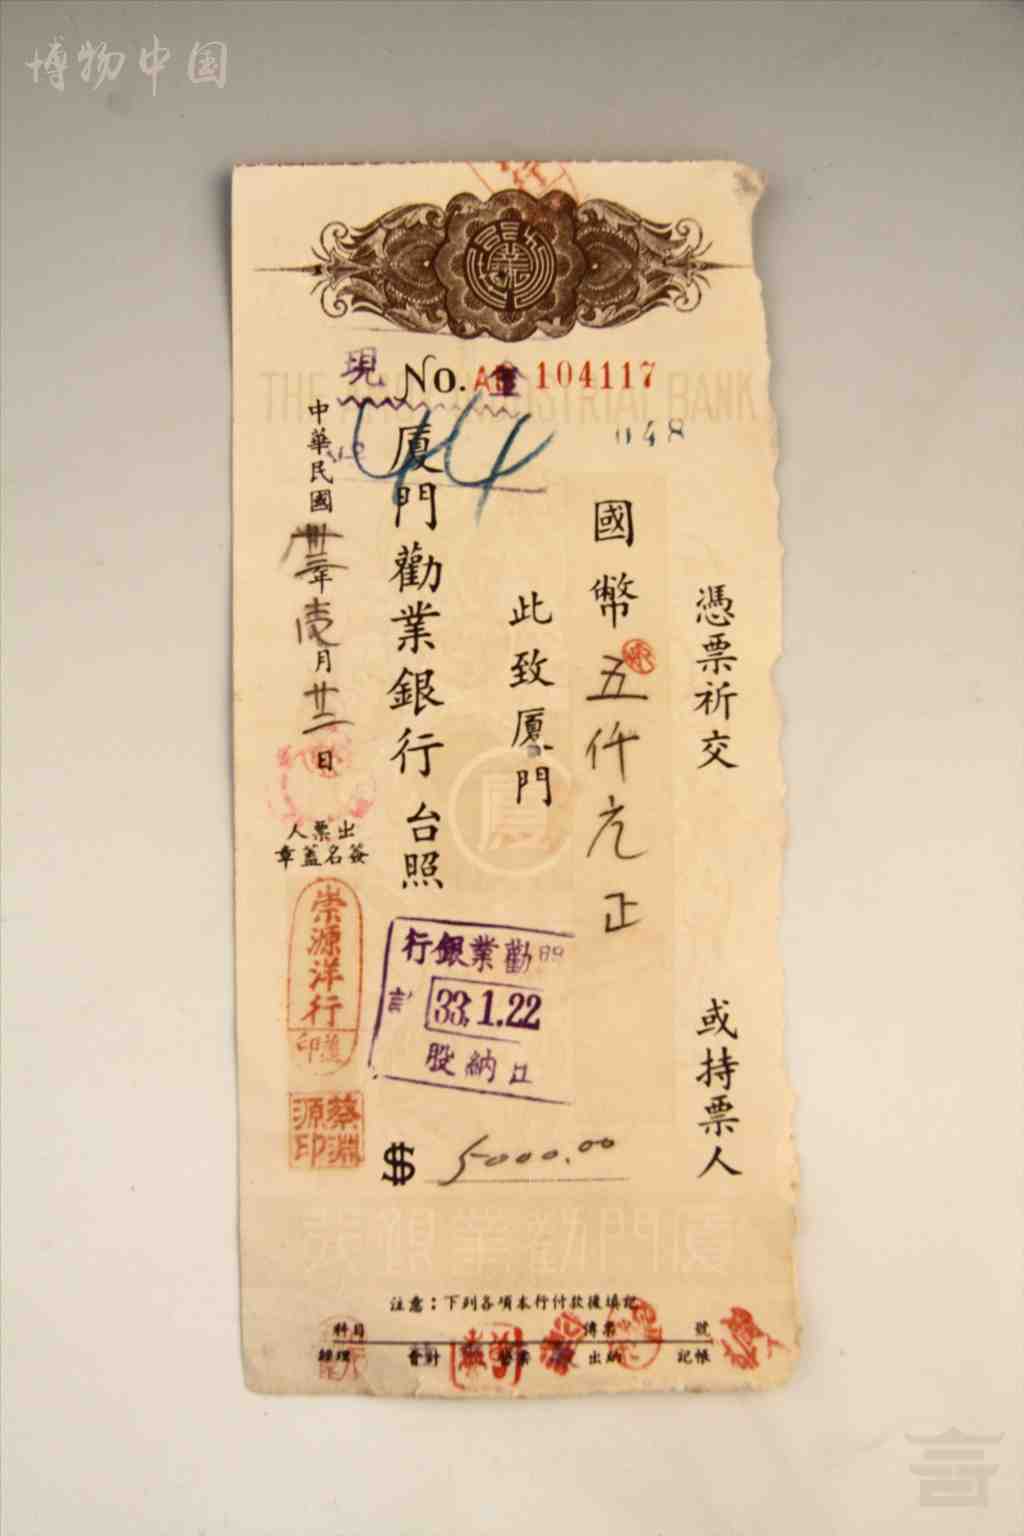 博物中国
憑票祈交 或持票人
國幣五仟元正
此致廈門
廈門勸業銀行 台照
中華民國卅三年壹月廿二日
現金
No. 104117
048
44
出票人
簽名蓋章
崇源洋行
蔡淵源印
勸業銀行
33.1.22
出納股
$ 5000.00
THE INDUSTRIAL BANK
廈
廈門勸業銀行
注意：下列各項本行付款後填記
科目 傳票 號
經理 會計 營業 出納 記帳